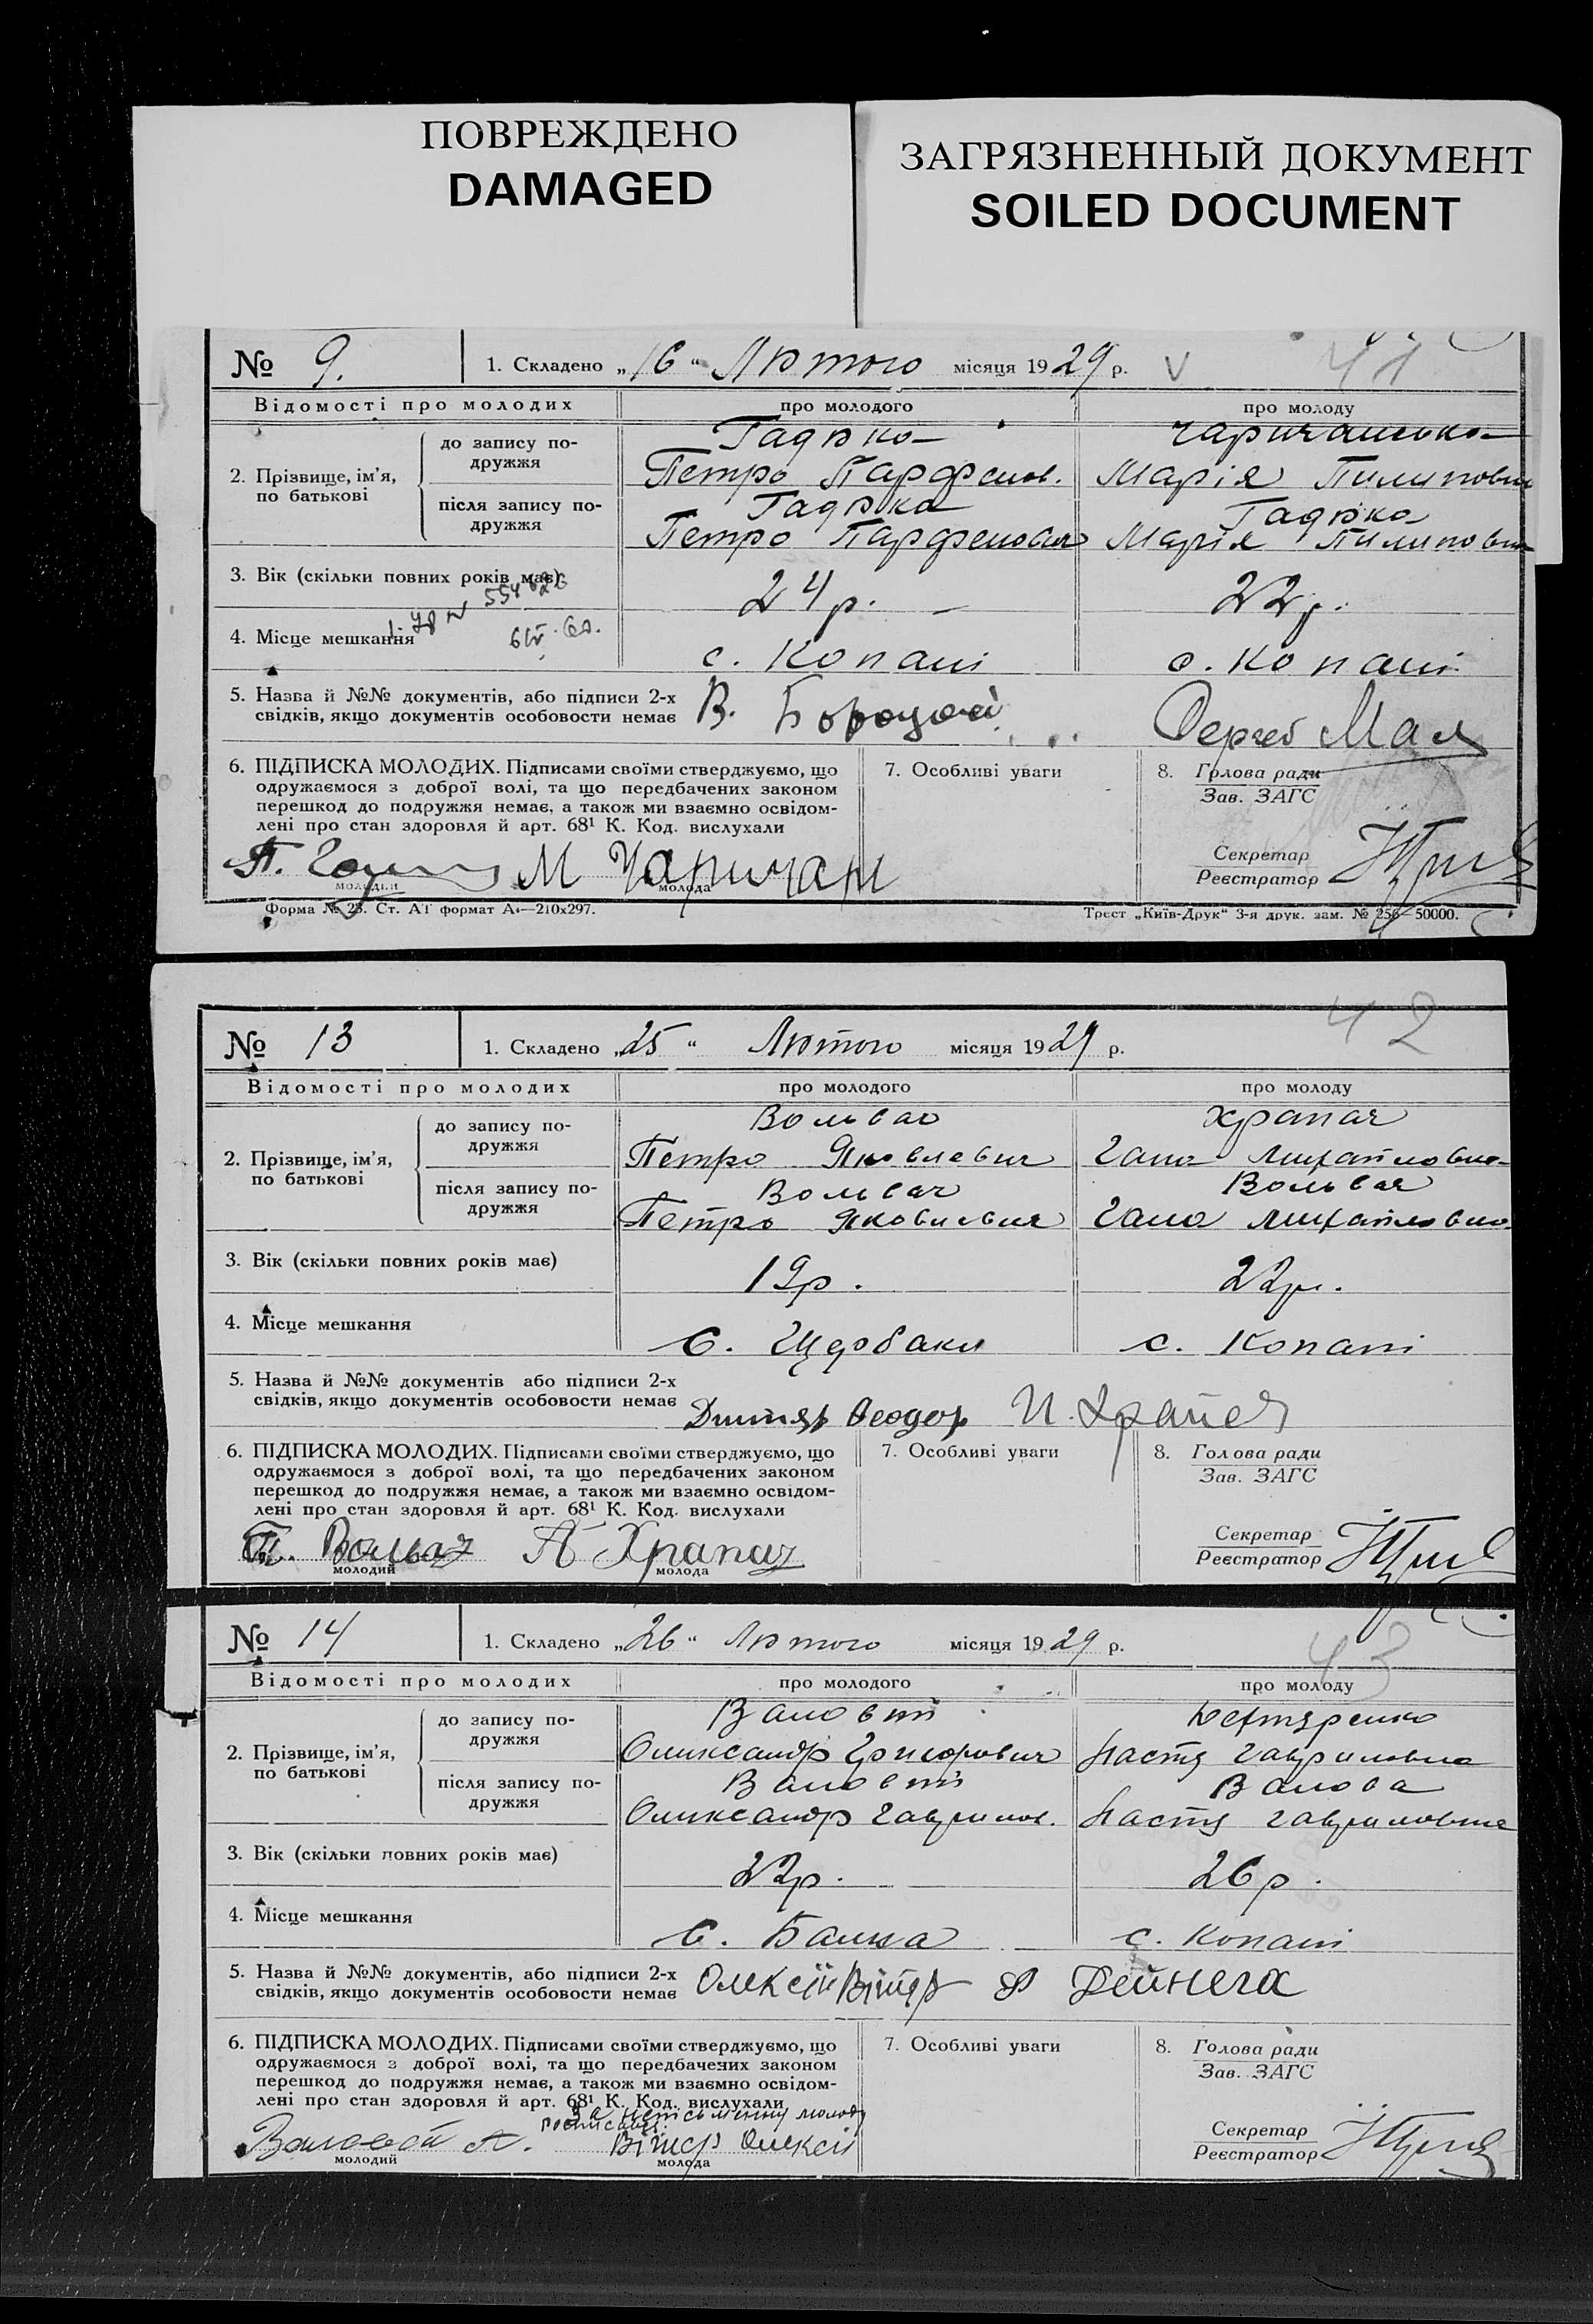 ПОВРЕЖДЕНО
DAMAGED
ЗАГРЯЗНЕННЫЙ ДОКУМЕНТ
SOILED DOCUMENT
№ 9. 1. Складено „16“ Лютого місяця 1929 р. V 41
Відомості про молодих про молодого про молоду
2. Прізвище, ім’я, по батькові
до запису подружжя
Гадюка
Петро Парфенов. Марія Пилиповна
після запису подружжя
Гадюка Гадюка
Петро Парфенович Марія Пилиповна
3. Вік (скільки повних років має) 24 р. 22 р.
4. Місце мешкання с. Копані с. Копані
5. Назва й №№ документів, або підписи 2-х
свідків, якщо документів особовости немає В.
6. ПІДПИСКА МОЛОДИХ. Підписами своїми стверджуємо, що
одружаємося з доброї волі, та що передбачених законом
перешкод до подружжя немає, а також ми взаємно освідом-
лені про стан здоровля й арт. 68¹ К. Код. вислухали
7. Особливі уваги
8. Голова ради
Зав. ЗАГС
Секретар
Реєстратор
П. М
молодий молода
Форма № 23. Ст. АІ формат А₄—210х297. Трест „Київ-Друк“ 3-я друк. зам. № 256—50000.
№ 13 1. Складено „25“ Лютого місяця 1929 р. 42
Відомості про молодих про молодого про молоду
2. Прізвище, ім’я,
по батькові
до запису по-
дружжя
Вольвач Храпач
Петро Яковлевич Гана Михайловна
після запису по-
дружжя
Вольвач Вольвач
Петро Яковлевич Гана Михайловна
3. Вік (скільки повних років має) 19 р. 22 р.
4. Місце мешкання с. Щербаки с. Копані
5. Назва й №№ документів або підписи 2-х
свідків, якщо документів особовости немає Феодор
6. ПІДПИСКА МОЛОДИХ. Підписами своїми стверджуємо, що
одружаємося з доброї волі, та що передбачених законом
перешкод до подружжя немає, а також ми взаємно освідом-
лені про стан здоровля й арт. 68¹ К. Код. вислухали
7. Особливі уваги
8. Голова ради
Зав. ЗАГС
Секретар
Реєстратор
П. Вольвач А Храпач
молодий молода
№ 14 1. Складено „26“ Лютого місяця 1929 р. 43
Відомості про молодих про молодого про молоду
2. Прізвище, ім’я,
по батькові
до запису по-
дружжя
Валовий Дехтяренко
Олександр Григорович Настя Гавриловна
після запису по-
дружжя
Валовий Валова
Олександр Гаврилов. Настя Гавриловна
3. Вік (скільки повних років має) 22 р. 26 р.
4. Місце мешкання с. Балка с. Копані
5. Назва й №№ документів, або підписи 2-х
свідків, якщо документів особовости немає Олексій Вітер Ф Дейнега
6. ПІДПИСКА МОЛОДИХ. Підписами своїми стверджуємо, що
одружаємося з доброї волі, та що передбачених законом
перешкод до подружжя немає, а також ми взаємно освідом-
лені про стан здоровля й арт. 68¹ К. Код. вислухали
7. Особливі уваги
8. Голова ради
Зав. ЗАГС
Секретар
Реєстратор
За неписьменну молоду
Валовой А. Вітер Олексій
молодий молода